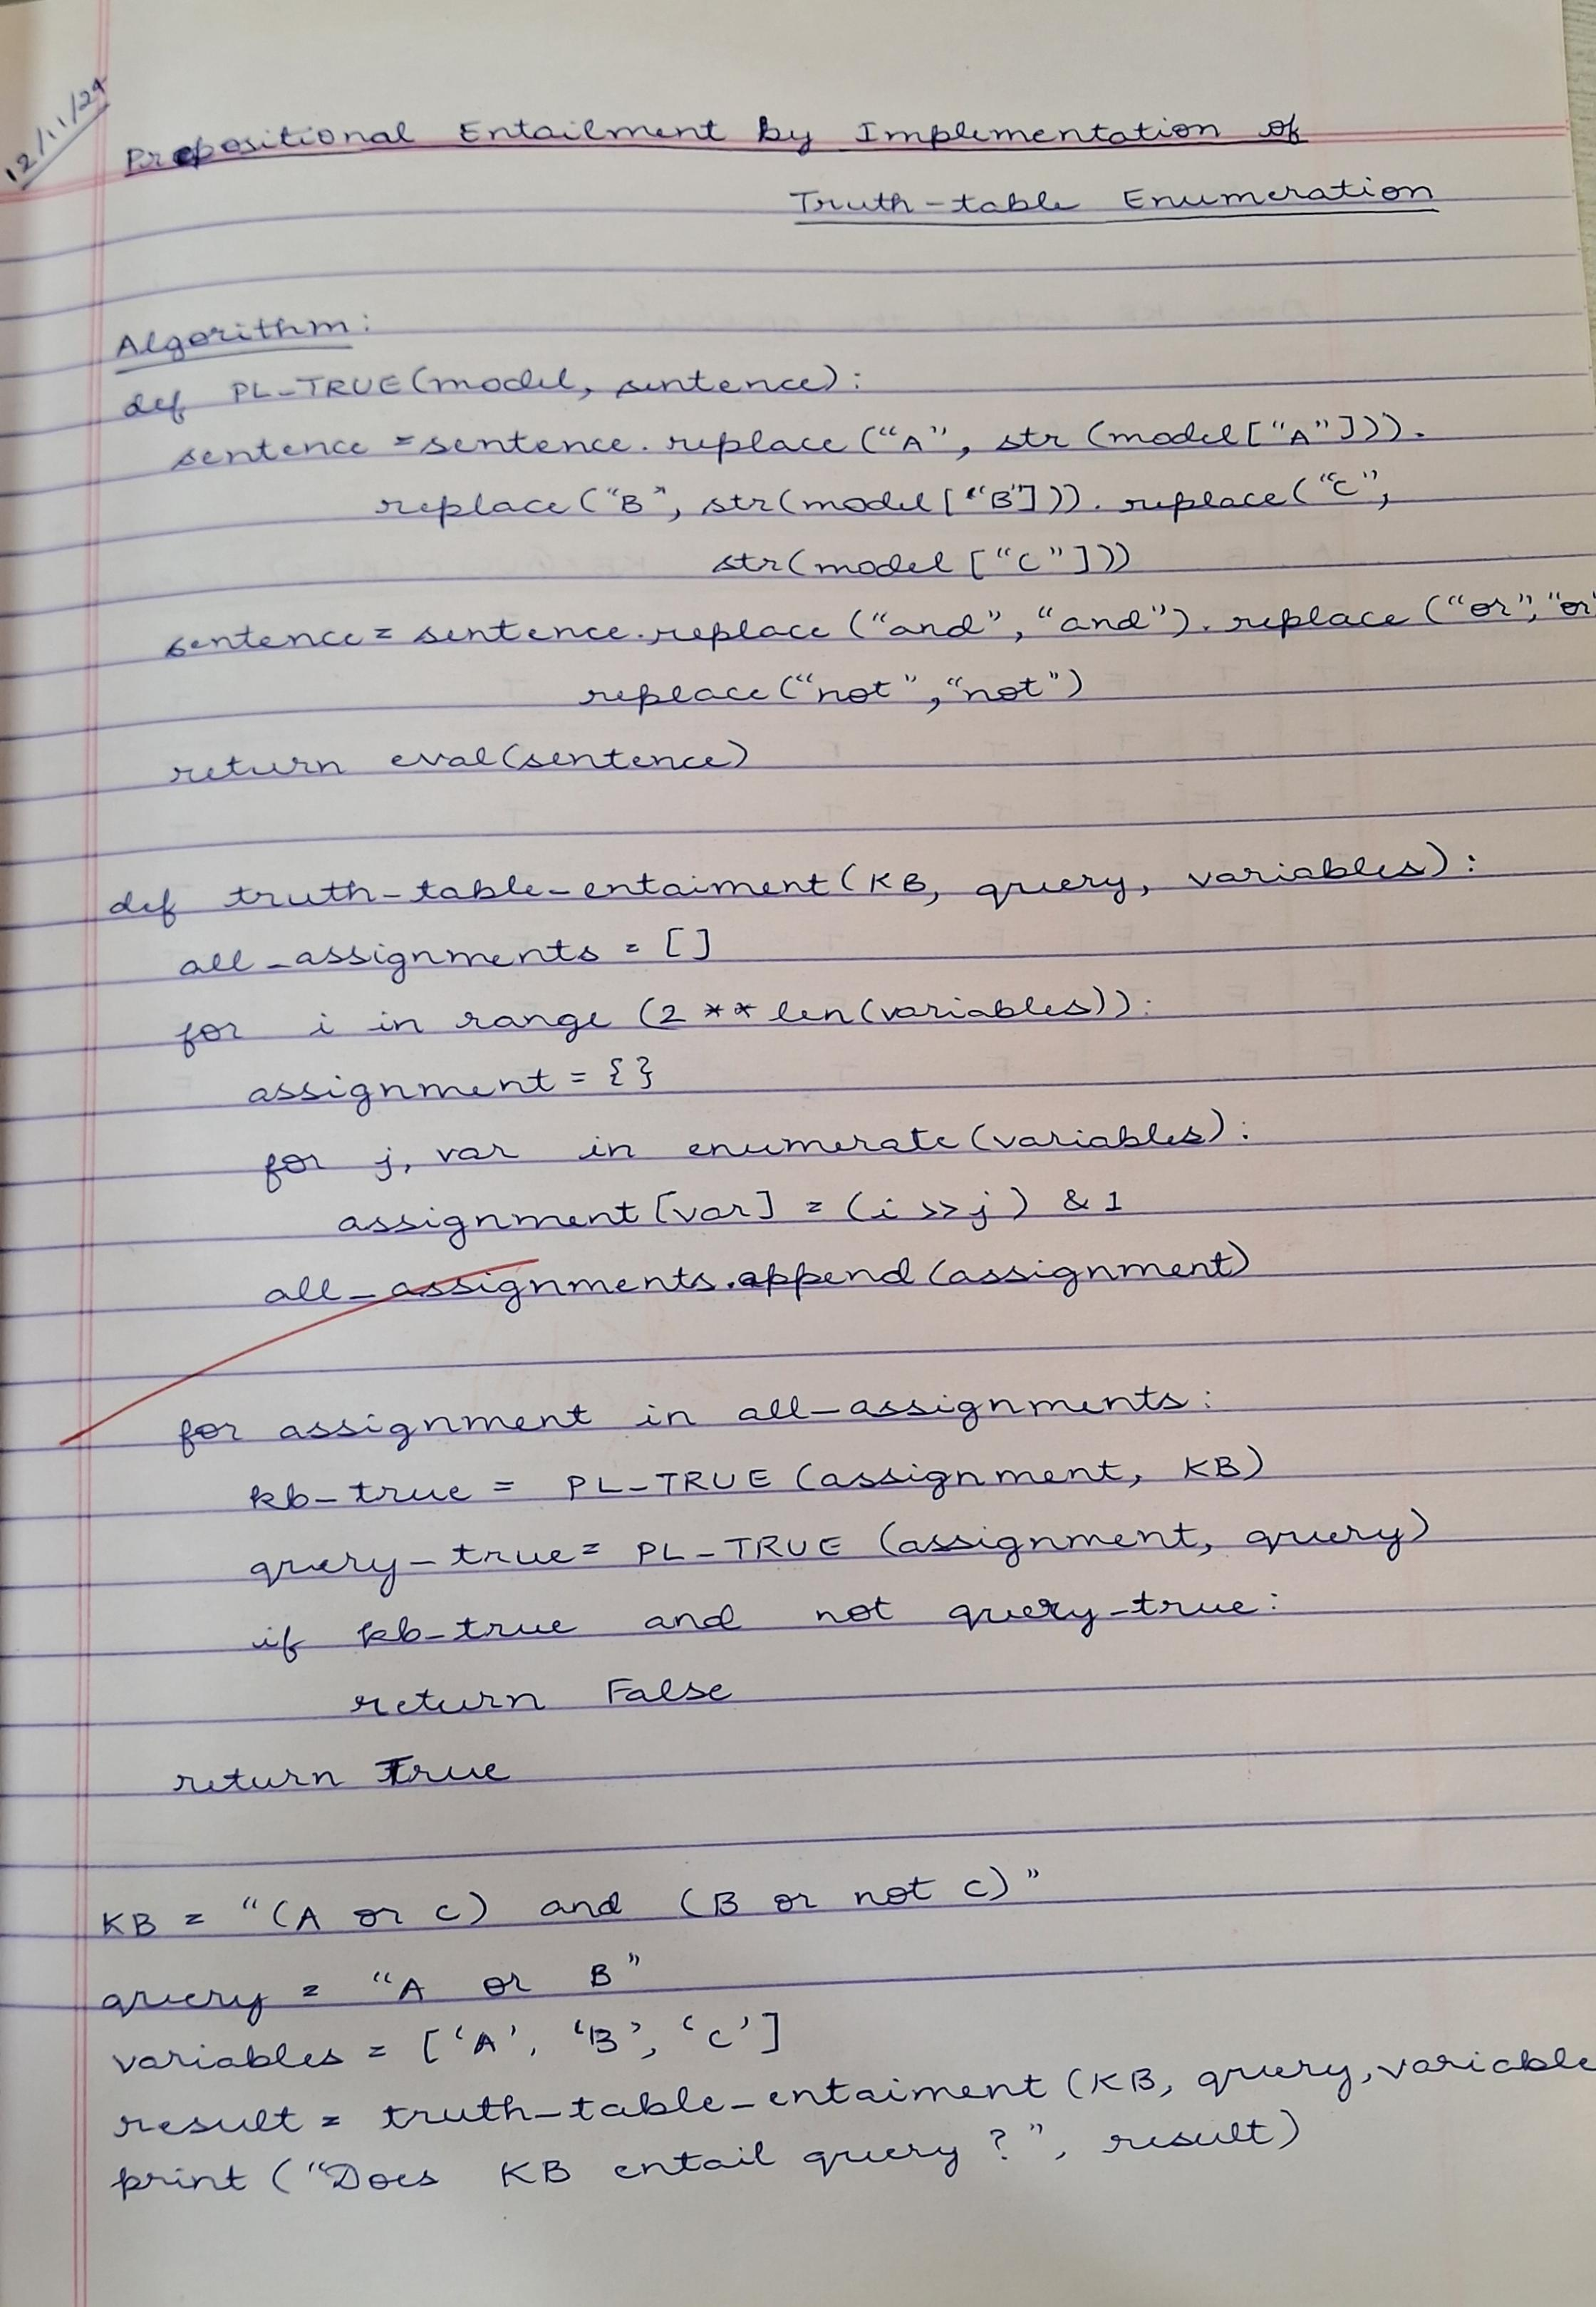 12/11/24
Propositional Entailment by Implementation of
Truth-table Enumeration
Algorithm:
def PL_TRUE(model, sentence):
sentence = sentence.replace("A", str(model["A"])).
replace("B", str(model["B"])).replace("C",
str(model["C"]))
sentence = sentence.replace("and","and").replace("or","or"
replace("not","not")
return eval(sentence)
def truth-table-entaiment(KB, query, variables):
all-assignments = []
for i in range (2 ** len(variables)):
assignment = {}
for j, var in enumerate(variables):
assignment[var] = (i >> j) & 1
all-assignments.append(assignment)
for assignment in all-assignments:
kb-true = PL_TRUE (assignment, KB)
query-true = PL_TRUE (assignment, query)
if kb-true and not query-true:
return False
return True
KB = "(A or C) and (B or not C)"
query = "A or B"
variables = ['A', 'B', 'C']
result = truth-table-entaiment (KB, query, variable
print ("Does KB entail query ?", result)